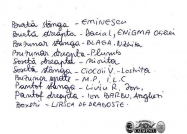 Burtă stânga - EMINESCU
Burta dreapta - Bacial, ENIGMA OTILIEI
Buzunar stânga - BLAGA, Nichita
Buzunar dreapta - Plumb
Șosetă dreapta - Nichita
Șosetă stânga - CIOCOII V. - Lechița
Buzunar spate - M.P., I.L.C
Pantof stânga - Liviu R, Ion,
Pantof dreapta - Ion BARBU, Arghezi
Boxeri - LIRICA DE DRAGOSTE.